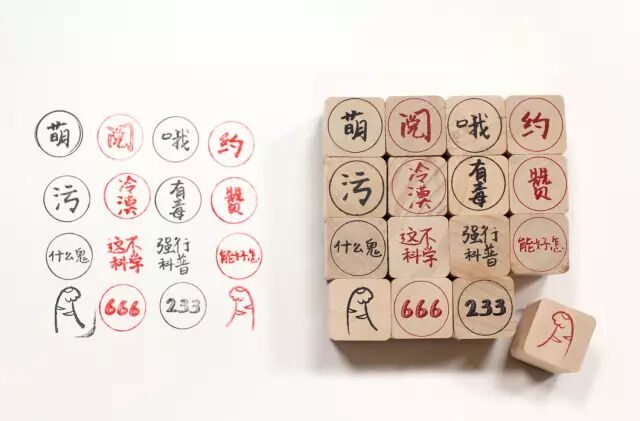 萌 阅 哦 约
污 冷漠 有毒 赞
什么鬼 这不科学 强行科普 能好怎
666 233
萌 阅 哦 约
污 冷漠 有毒 赞
什么鬼 这不科学 强行科普 能好怎
666 233